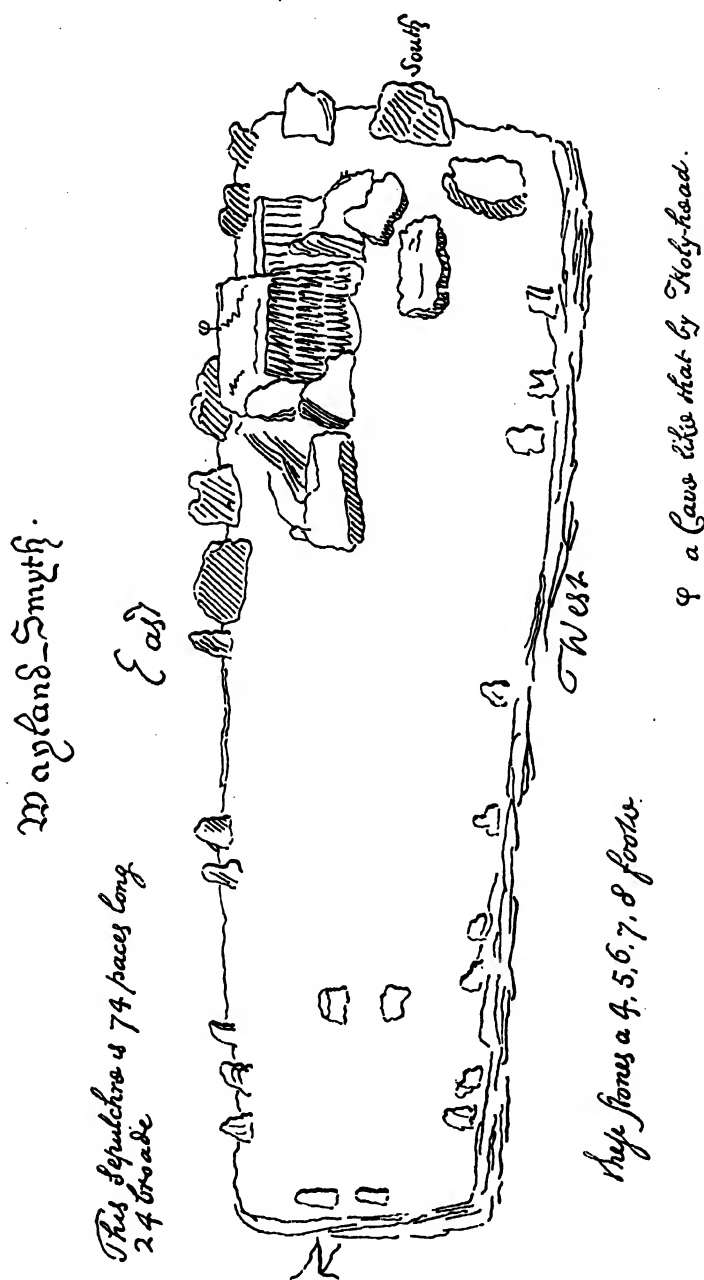 Wayland-Smyth.
This Sepulchre is 74 paces long
24 broade
East
South
West
N
these stones a 4, 5, 6, 7, 8 foote.
φ a Cave like that by Holy-head.
φ